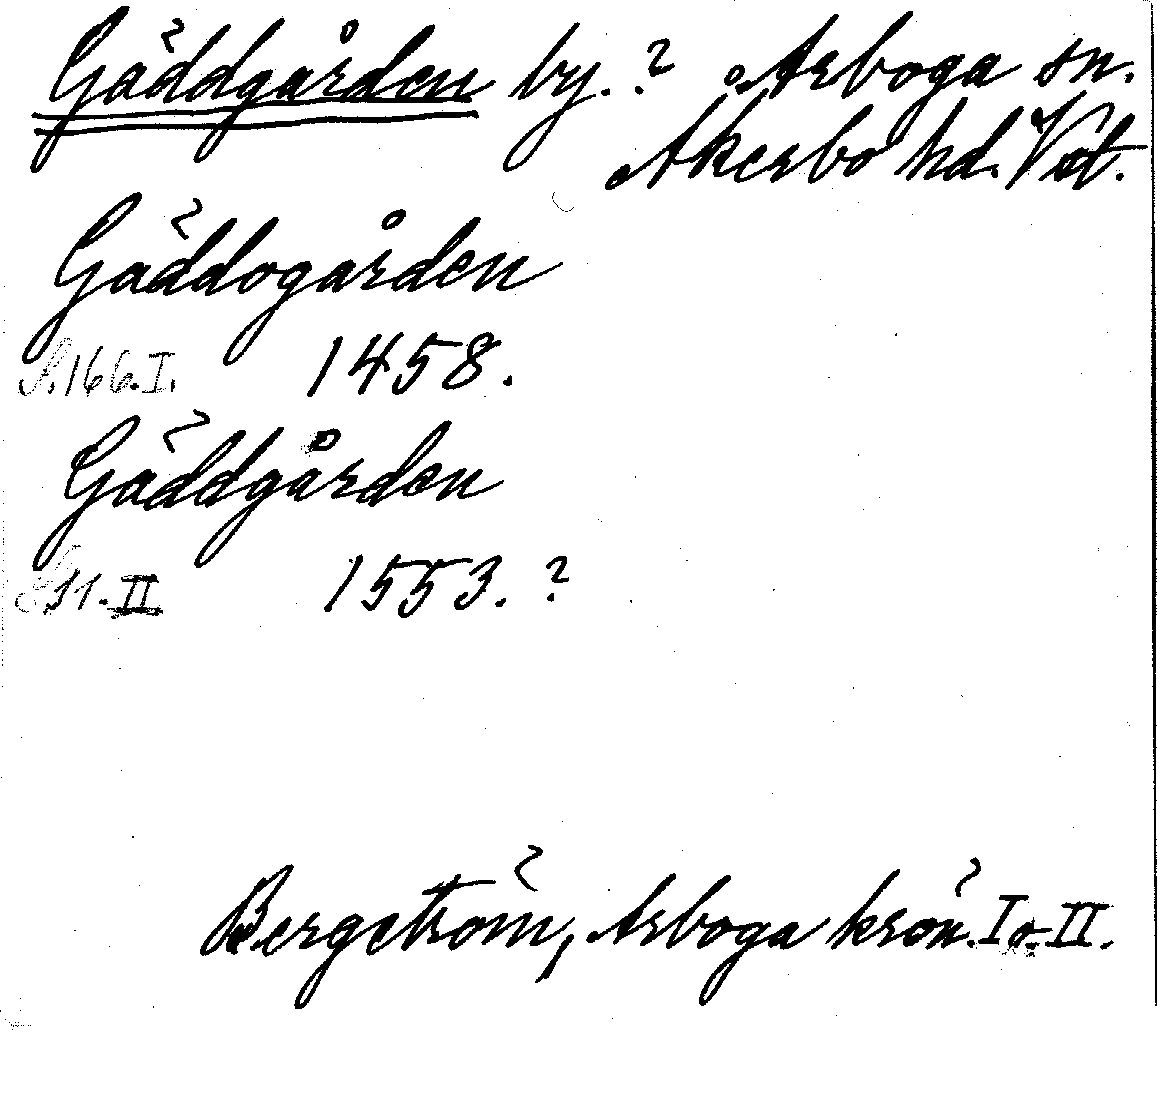 Gäddgården by.? Arboga sn.
Akerbo hd. Vstl.
Gäddogården
S.166.I. 1458.
Gäddgården
S11.II 1553.?
Bergström, Arboga krön. I o. II.